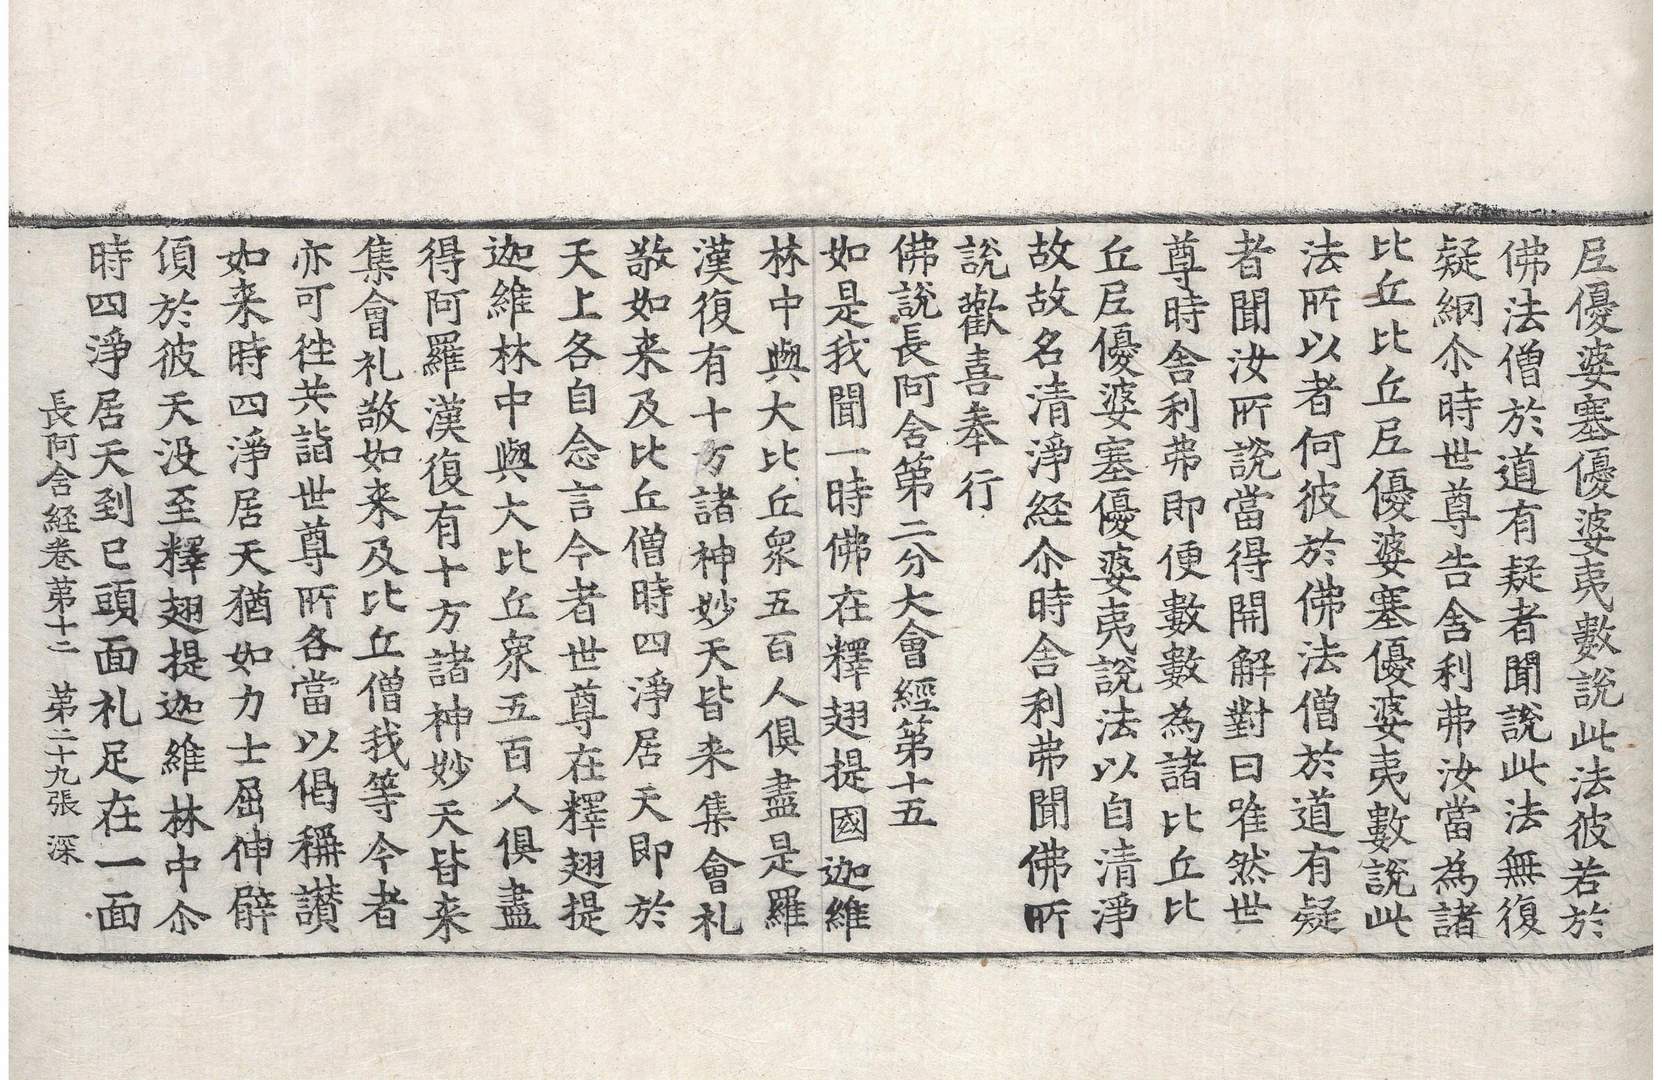 尼優婆塞優婆夷數說此法彼若於
佛法僧於道有疑者聞說此法無復
疑網尒時世尊告舍利弗汝當為諸
比丘比丘尼優婆塞優婆夷數說此
法所以者何彼於佛法僧於道有疑
者聞汝所說當得開解對曰唯然世
尊時舍利弗即便數數為諸比丘比
丘尼優婆塞優婆夷說法以自清淨
故故名清淨經尒時舍利弗聞佛所
說歡喜奉行
佛說長阿含第二分大會經第十五
如是我聞一時佛在釋翅提國迦維
林中與大比丘眾五百人俱盡是羅
漢復有十方諸神妙天皆来集會礼
敬如来及比丘僧時四淨居天即於
天上各自念言今者世尊在釋翅提
迦維林中與大比丘眾五百人俱盡
得阿羅漢復有十方諸神妙天皆来
集會礼敬如来及比丘僧我等今者
亦可往共詣世尊所各當以偈稱讃
如来時四淨居天猶如力士屈伸臂
傾於彼天没至釋翅提迦維林中尒
時四淨居天到已頭面礼足在一面
長阿含経卷第十二 第二十九張 深